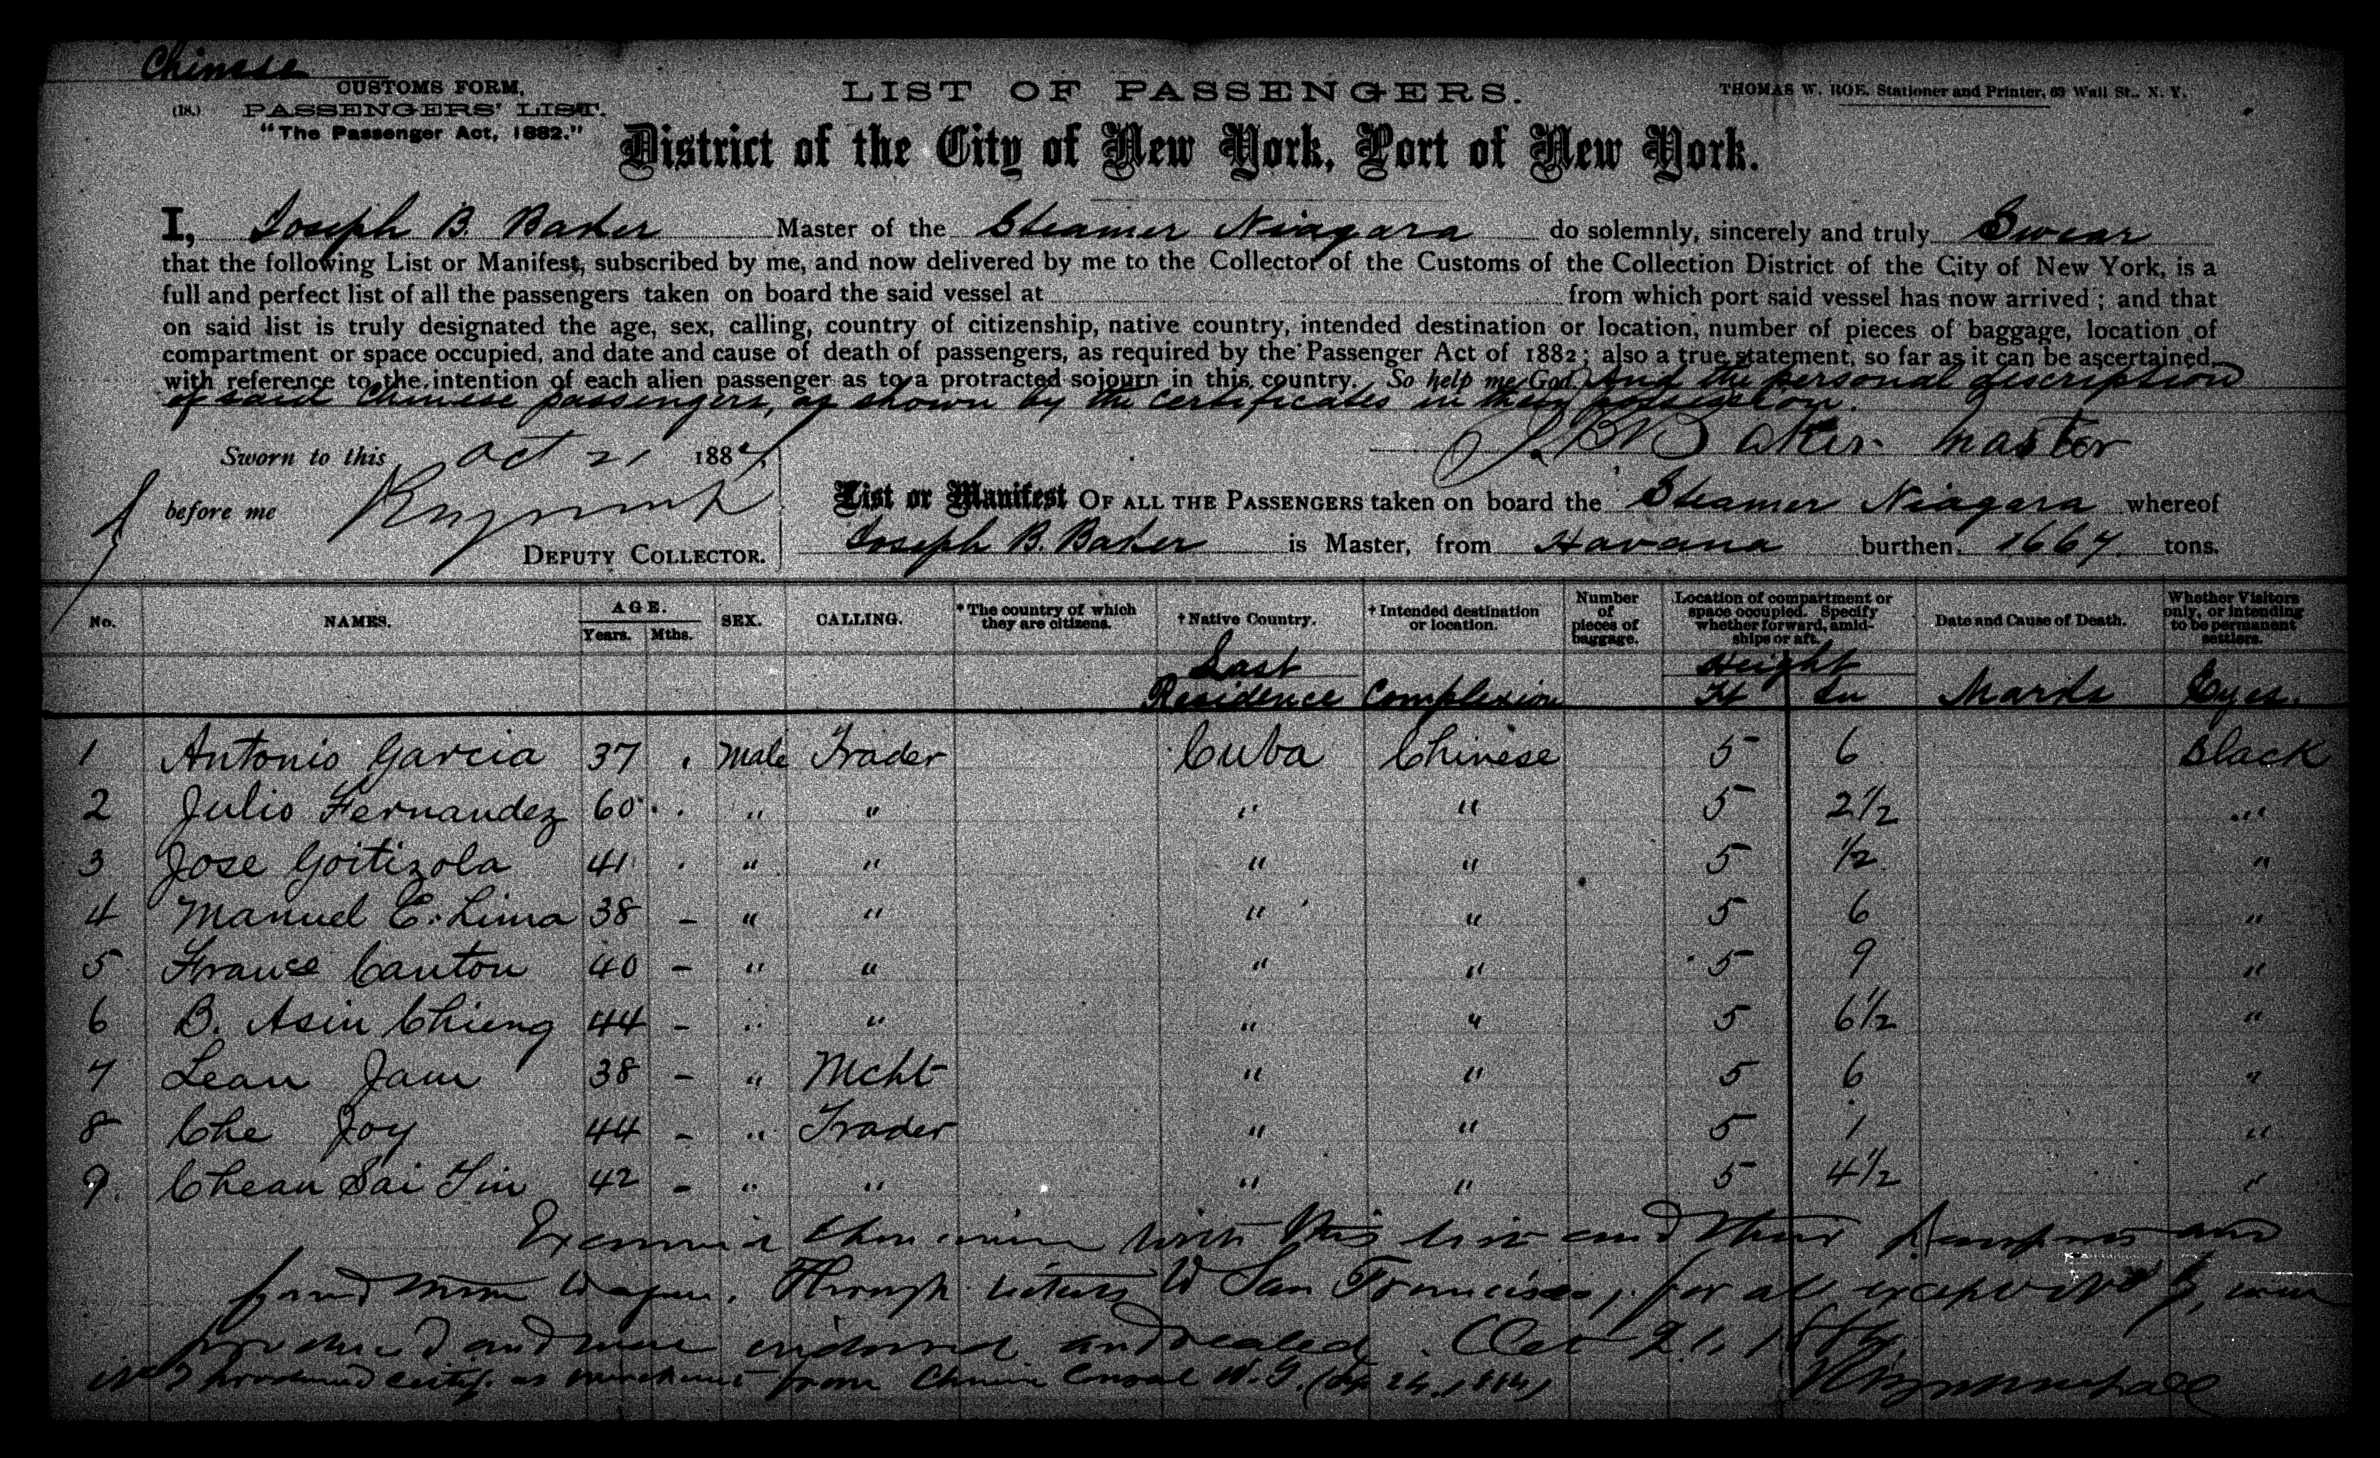 Chinese
CUSTOMS FORM,
(18.) PASSENGERS' LIST.
"The Passenger Act, 1882."
LIST OF PASSENGERS.
THOMAS W. ROE, Stationer and Printer, 63 Wall St., N. Y.
District of the City of New York, Port of New York.
I, Joseph B. Baker Master of the Steamer Niagara do solemnly, sincerely and truly Swear
that the following List or Manifest, subscribed by me, and now delivered by me to the Collector of the Customs of the Collection District of the City of New York, is a
full and perfect list of all the passengers taken on board the said vessel at from which port said vessel has now arrived; and that
on said list is truly designated the age, sex, calling, country of citizenship, native country, intended destination or location, number of pieces of baggage, location of
compartment or space occupied, and date and cause of death of passengers, as required by the Passenger Act of 1882; also a true statement, so far as it can be ascertained
with reference to the intention of each alien passenger as to a protracted sojourn in this country. So help me God. And the personal description
of said Chinese passengers, as shown by the certificates in their possession.
J. B. Baker Master
Sworn to this Oct 21 1884
before me
DEPUTY COLLECTOR.
List or Manifest OF ALL THE PASSENGERS taken on board the Steamer Niagara whereof
Joseph B. Baker is Master, from Havana burthen 1667 tons.
No. NAMES. AGE. Years. Mths. SEX. CALLING. *The country of which they are citizens. †Native Country. †Intended destination or location. Number of pieces of baggage. Location of compartment or space occupied. Specify whether forward, amidships or aft. Date and Cause of Death. Whether Visitors only, or intending to be permanent settlers.
Last Residence Complexion Height Ft In Marks Eyes.
1 Antonio Garcia 37 Male Trader Cuba Chinese 5 6 Black
2 Julio Fernandez 60 " " " " 5 2½ "
3 Jose Goitizola 41 " " " " 5 ½ "
4 Manuel C. Lima 38 - " " " " 5 6 "
5 Franse Canton 40 - " " " " 5 9 "
6 B. Asin Chieng 44 - " " " " 5 6½ "
7 Lean Jam 38 - " Mcht " " 5 6 "
8 Che Joy 44 - " Trader " " 5 1 "
9. Chean Sai Tin 42 - " " " " 5 4½ "
with this list and their and
found them Through tickets to San Francisco, for all except No 7, were
produced and were endorsed and sealed. Oct 21, 1884
No 7 produced certif. as merchant from Chinese Consul N.Y.